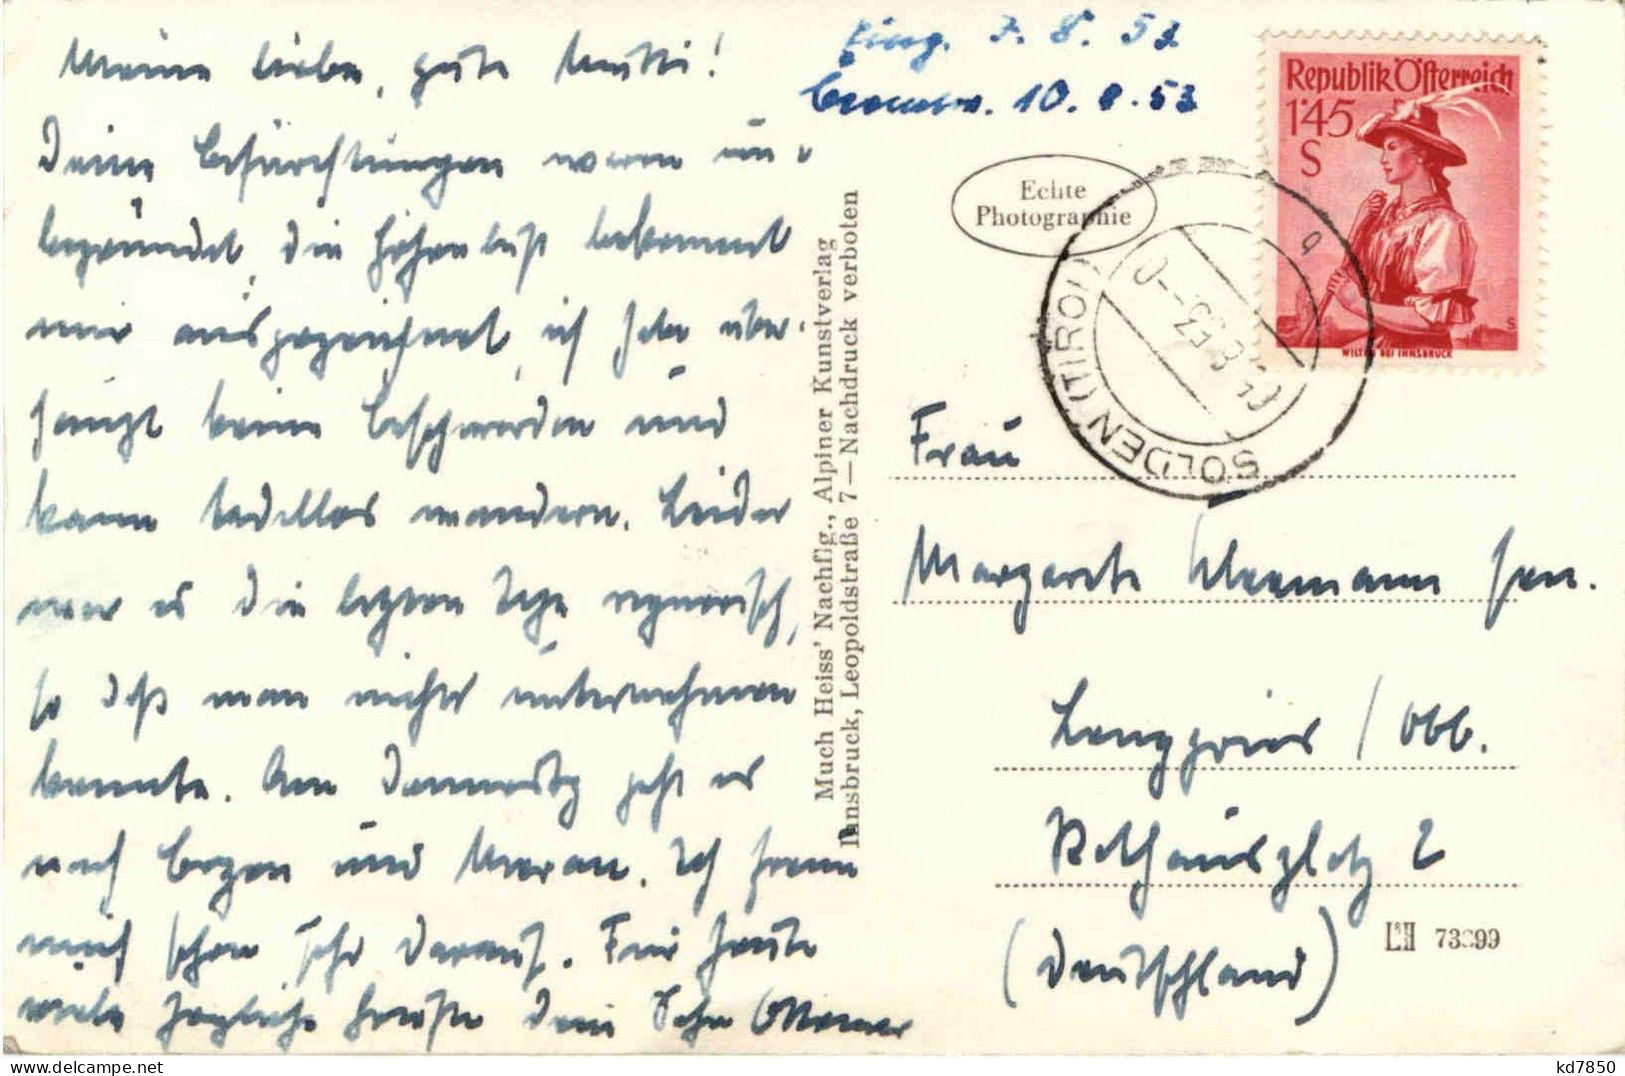 Meine liebe, gute Mutti!
Deine Befürchtungen waren un-
begründet, die Höhenluft bekommt
mir ausgezeichnet, ich habe über-
haupt keine Beschwerden und
kann tadellos wandern. Leider
war es die letzten Tage regnerisch,
so daß man nichts unternehmen
konnte. Am Donnerstg geht es
nach Bozen und Meran. Ich freue
mich schon sehr darauf. Für heute
viele herzliche Grüße Dein Sohn Ottomar
Eing. 7. 8. 53
Beantw. 10. 8. 53
Republik Österreich
1·45
S
WILTEN BEI INNSBRUCK
Echte
Photographie
SÖLDEN (TIROL)
Much Heiss' Nachflg., Alpiner Kunstverlag
Innsbruck, Leopoldstraße 7 — Nachdruck verboten
Frau
Margarete sen.
Lenggries / Obb.
Rathausplatz 2
(Deutschland)
kd7850